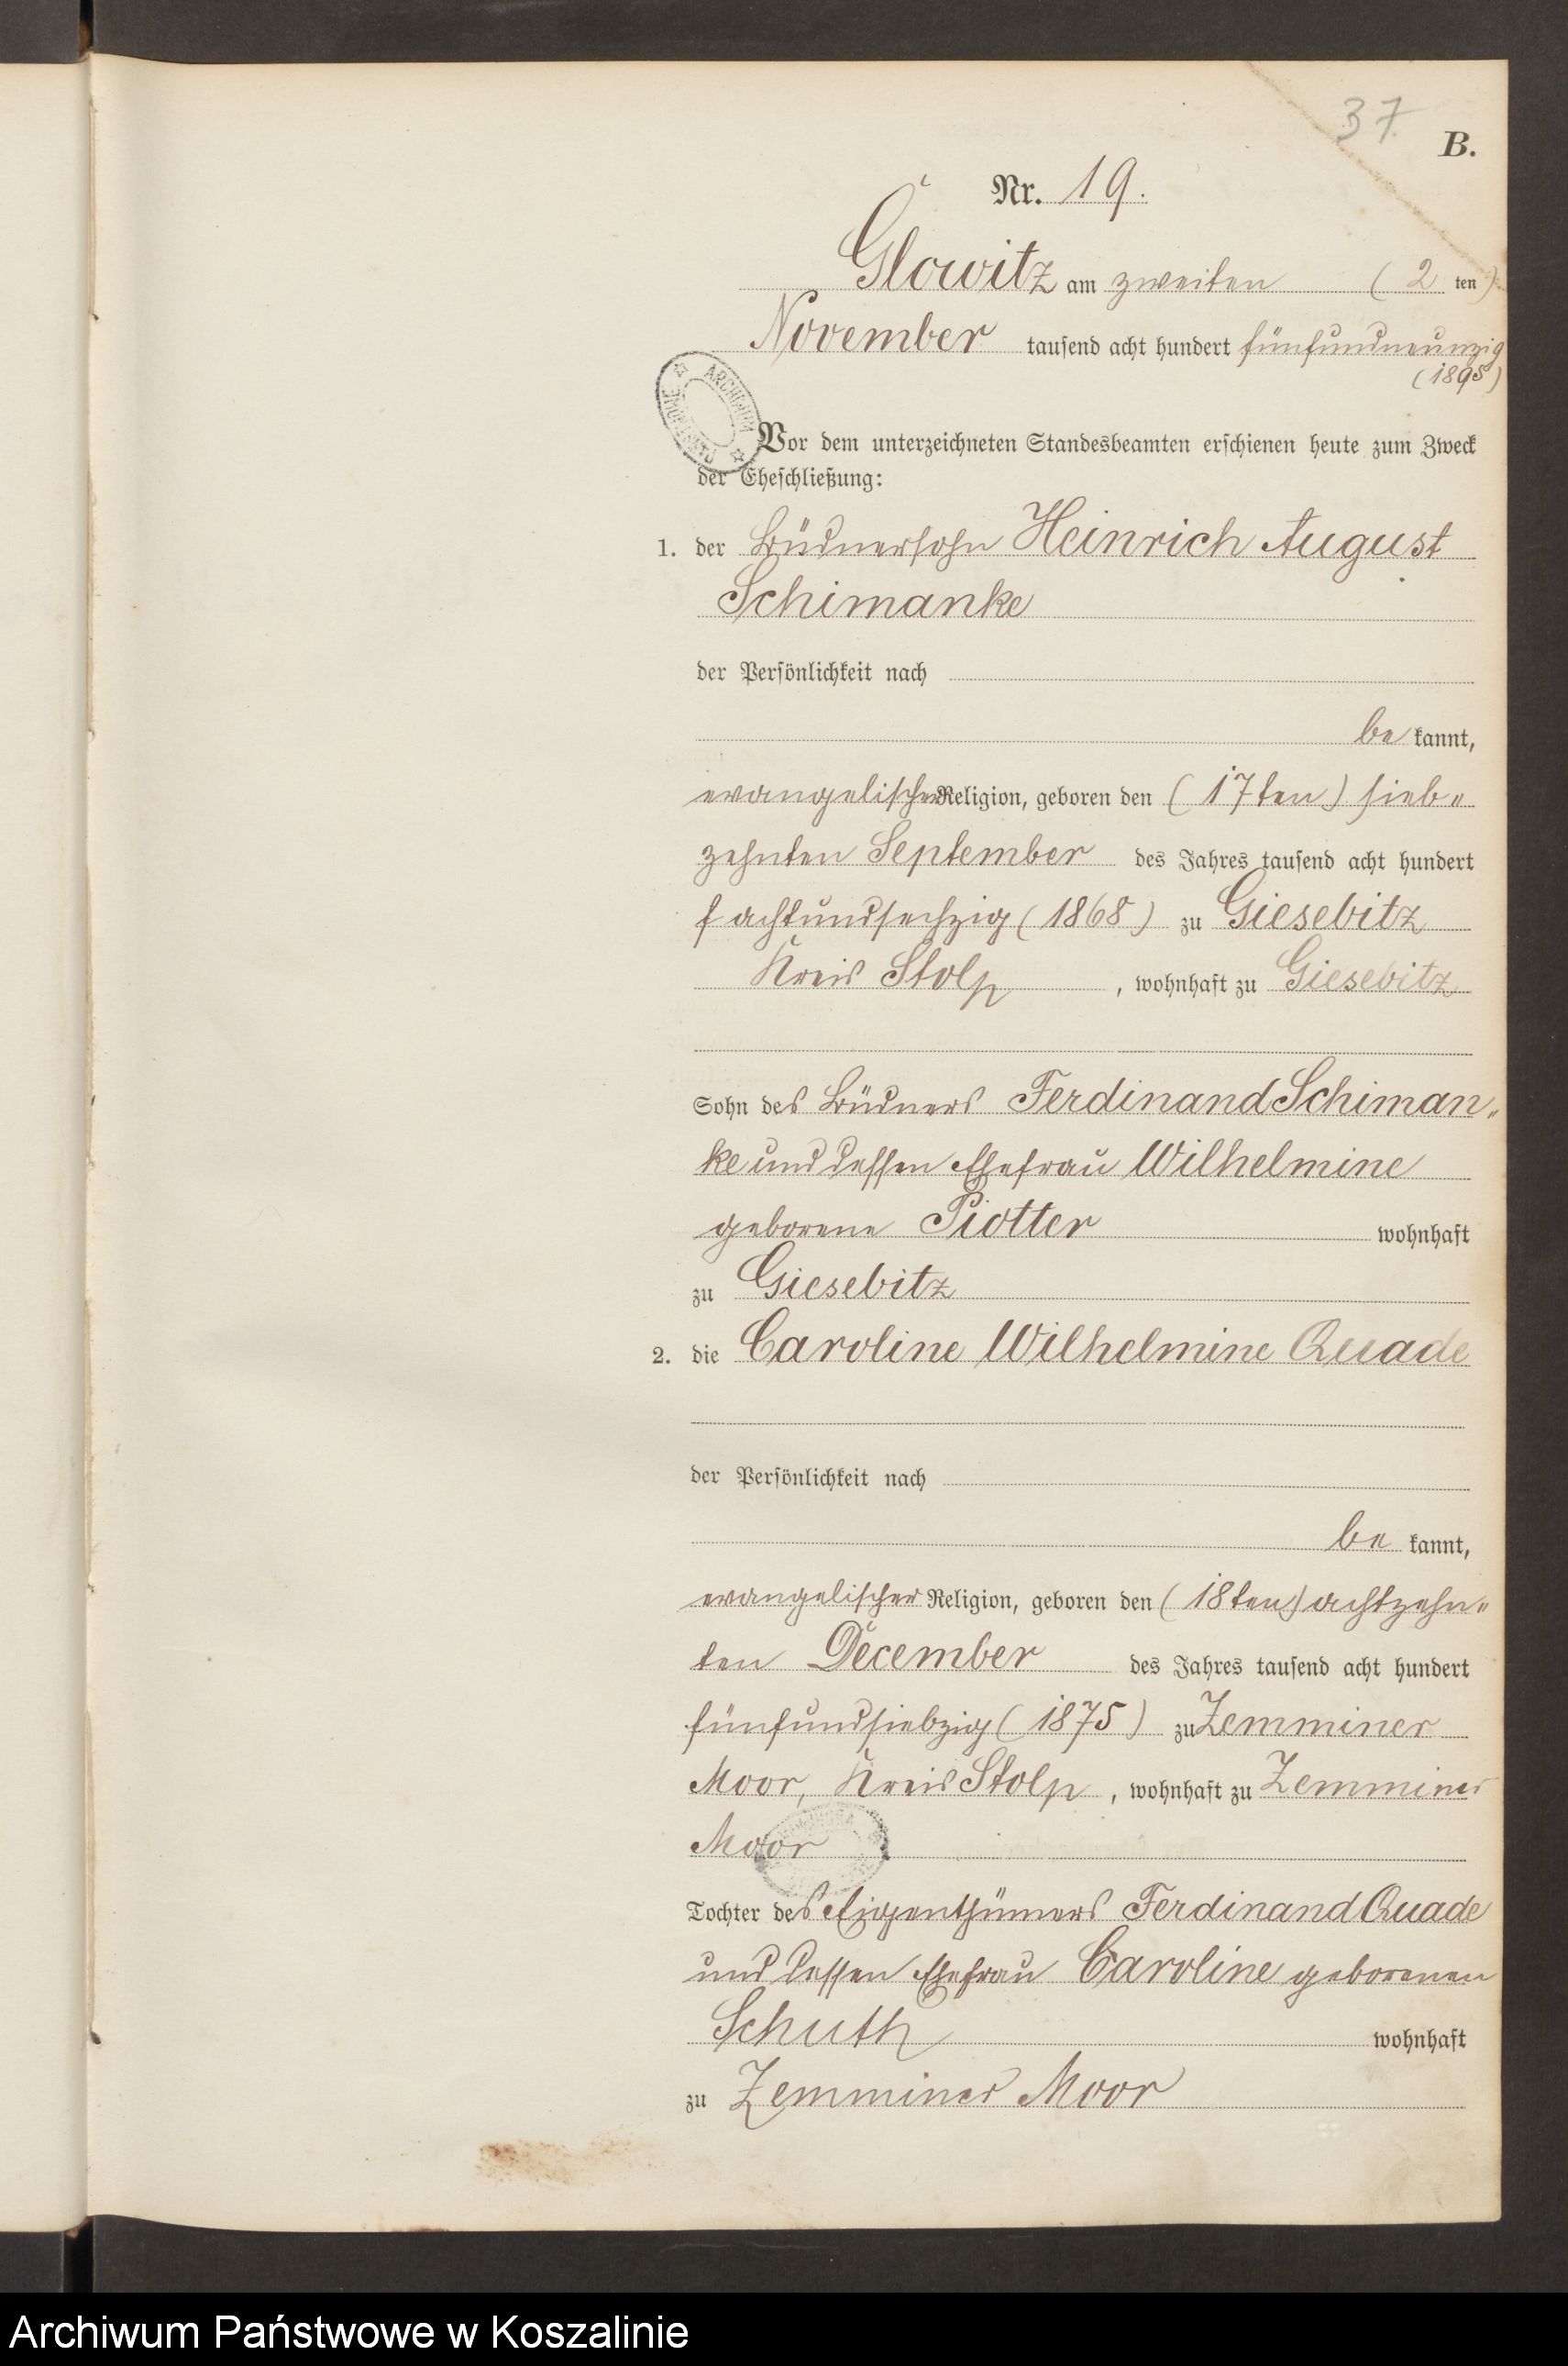 37
B.
Nr. 19.
Glowitz am zweiten (2 ten)
November tausend acht hundert fünfundneunzig
(1895)
ARCHIWUM PAŃSTWOWE
Vor dem unterzeichneten Standesbeamten erschienen heute zum Zweck
der Eheschließung:
1. der Büdnersohn Heinrich August
Schimanke
der Persönlichkeit nach
be kannt,
evangelischer Religion, geboren den (17ten) sieb„
zehnten September des Jahres tausend acht hundert
achtundsechzig (1868) zu Giesebitz
Kreis Stolp, wohnhaft zu Giesebitz
Sohn des Büdners Ferdinand Schiman„
ke und dessen Ehefrau Wilhelmine
geborene Piotter wohnhaft
zu Giesebitz
2. die Caroline Wilhelmine Quade
der Persönlichkeit nach
be kannt,
evangelischer Religion, geboren den (18ten) achtzehn„
ten December des Jahres tausend acht hundert
fünfundsiebzig (1875) zu Zemminer
Moor, Kreis Stolp, wohnhaft zu Zemminer
Moor
Tochter des Eigenthümers Ferdinand Quade
und dessen Ehefrau Caroline geborenen
Schuth wohnhaft
zu Zemminer Moor
Archiwum Państwowe w Koszalinie